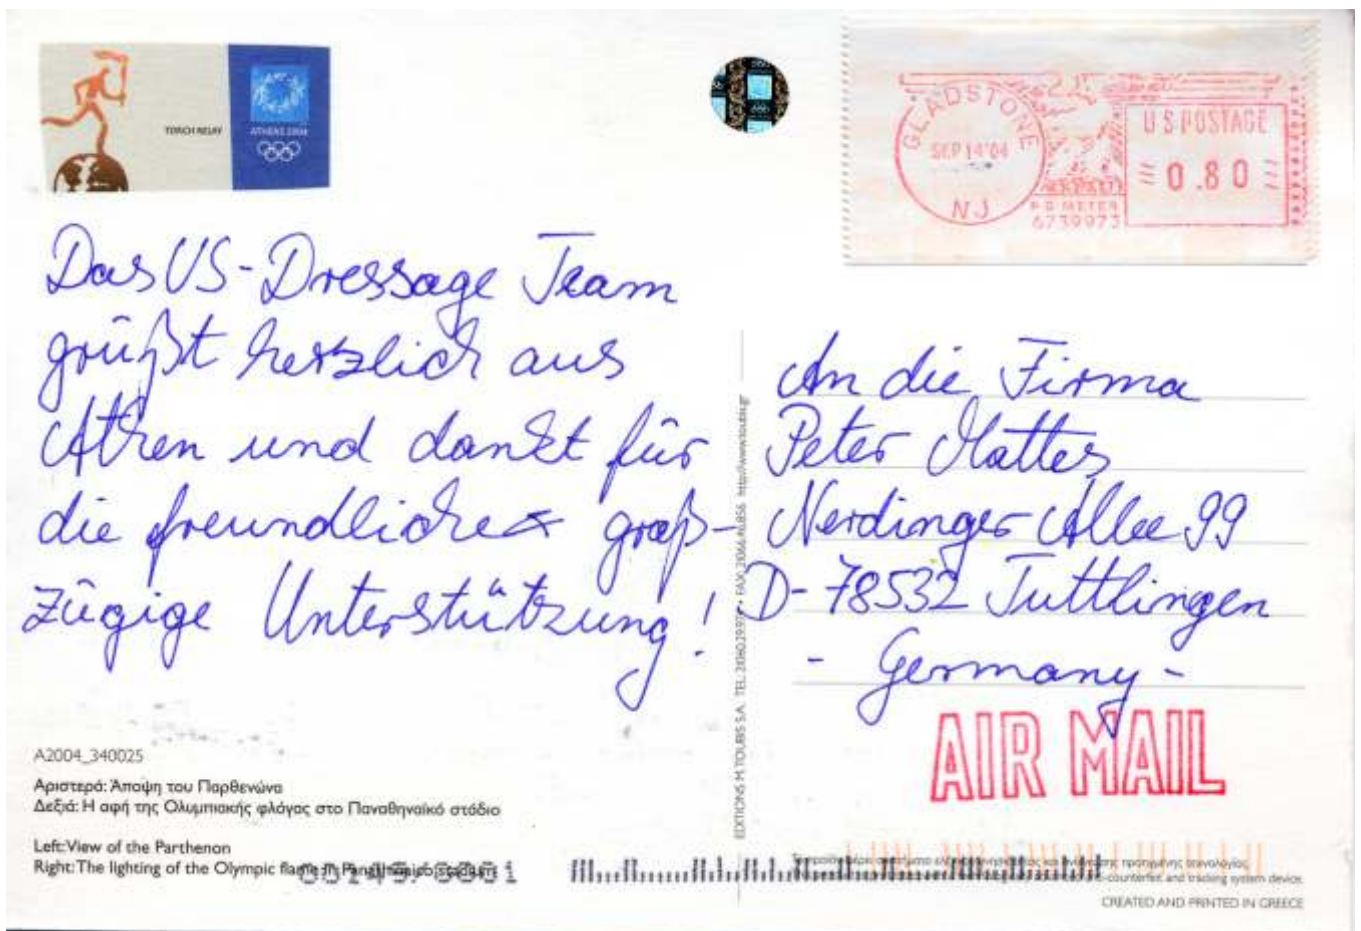 TORCH RELAY
ATHENS 2004
GLADSTONE
SEP 14'04
NJ
U S POSTAGE
0.80
P B METER
6739973
Das US-Dressage Team
grüßt herzlich aus
Athen und dankt für
die freundliche & groß-
zügige Unterstützung!
An die Firma
Peter Mattes
Nerdinger Allee 99
D-78532 Tuttlingen
- Germany -
AIR MAIL
A2004_340025
Αριστερά: Άποψη του Παρθενώνα
Δεξιά: Η αφή της Ολυμπιακής φλόγας στο Παναθηναϊκό στάδιο
Left: View of the Parthenon
Right: The lighting of the Olympic flame in Panathinaico stadium
EDITIONS M. TOUBIS S.A. TEL.: FAX: http://www.toubis.gr
and tracking system device.
CREATED AND PRINTED IN GREECE